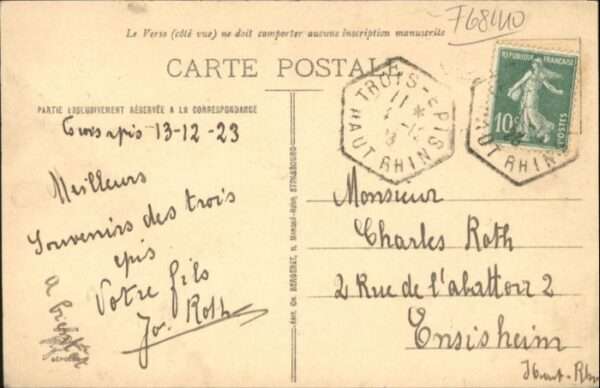 F68410
Le Verso (côté vue) ne doit comporter aucune inscription manuscrite
CARTE POSTALE
PARTIE EXCLUSIVEMENT RÉSERVÉE A LA CORRESPONDANCE
Trois épis 13-12-23
Meilleurs
Souvenirs des trois
épis
Votre fils
Jos. Roth
A bientôt
TROIS-EPIS
11 *
HAUT RHIN
RÉPUBLIQUE FRANÇAISE
10c
POSTES
HAUT RHIN
Monsieur
Charles Roth
2 Rue de l'abattoir 2
Ensisheim
Haut-Rhin